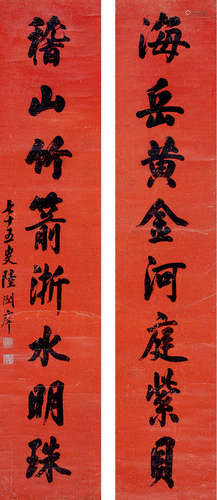 海岳黄金河庭紫貝
稽山竹箭浙水明珠
七十五叟陸潤庠